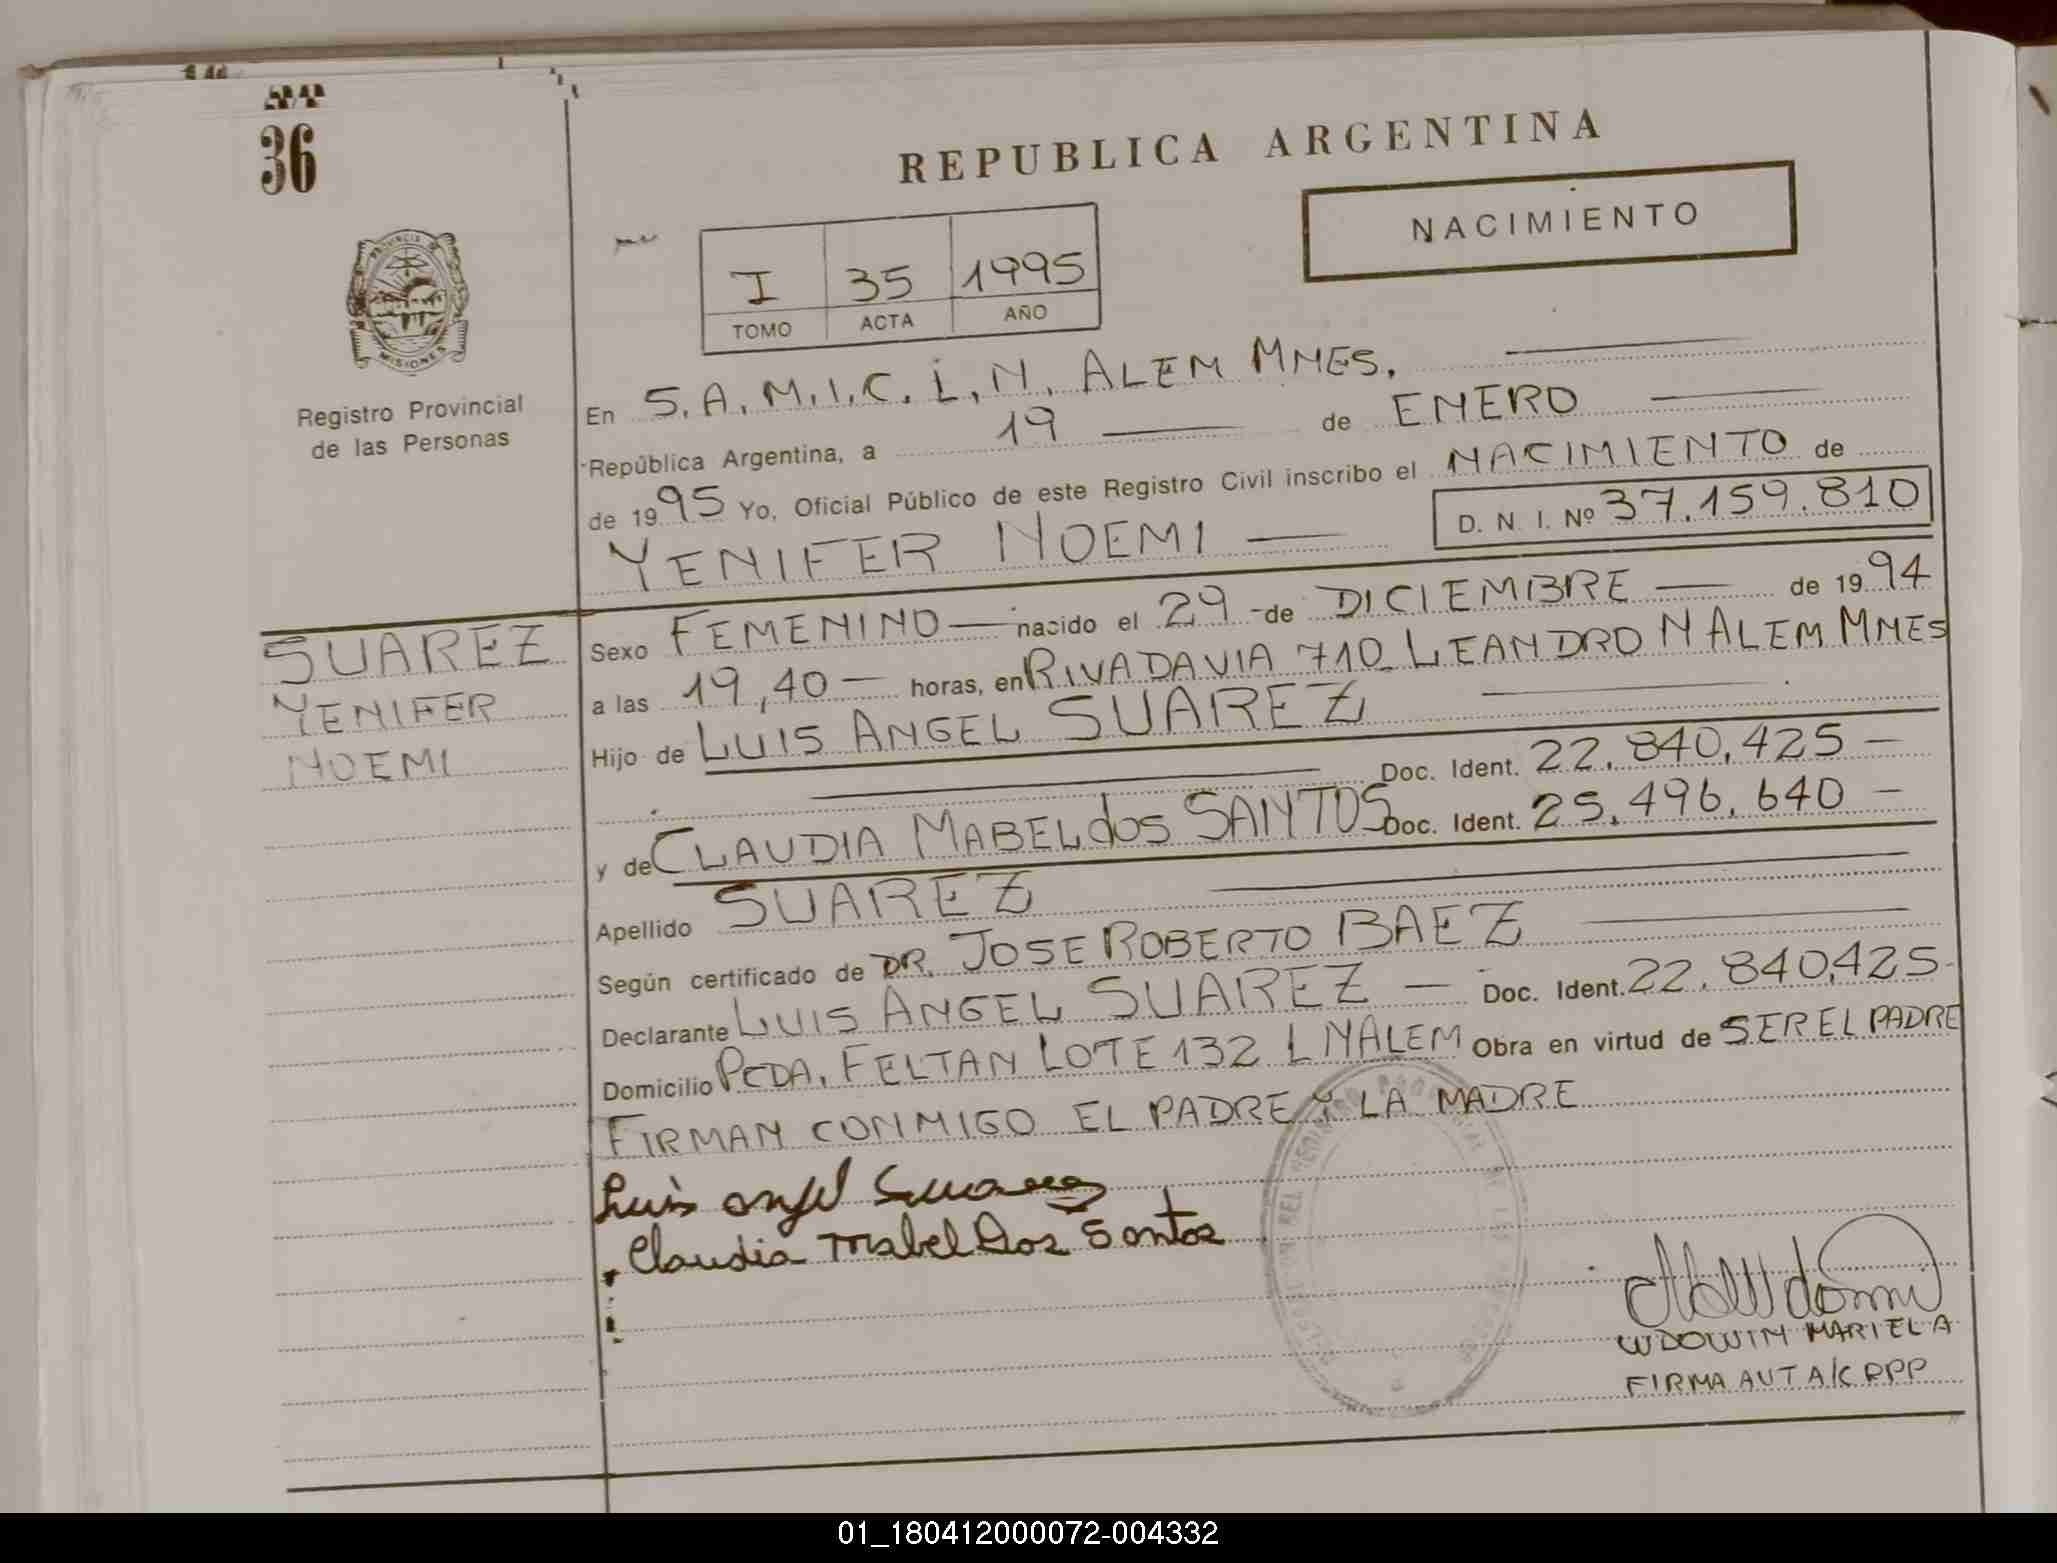 36
REPUBLICA ARGENTINA
NACIMIENTO
I 35 1995
TOMO ACTA AÑO
PROVINCIA DE
MISIONES
Registro Provincial
de las Personas
En S.A.M.I.C. L.N. ALEM MNES.
República Argentina, a 19 de ENERO
de 1995 Yo, Oficial Público de este Registro Civil inscribo el NACIMIENTO de
YENIFER NOEMI D. N. I. Nº 37.159.810
SUAREZ
YENIFER
NOEMI
Sexo FEMENINO nacido el 29 de DICIEMBRE de 1994
a las 19,40 horas, en RIVADAVIA 710 LEANDRO N ALEM MNES
Hijo de LUIS ANGEL SUAREZ
Doc. Ident. 22.840.425
y de CLAUDIA MABEL dOS SANTOS Doc. Ident. 25.496.640
Apellido SUAREZ
Según certificado de DR. JOSE ROBERTO BAEZ
Declarante LUIS ANGEL SUAREZ Doc. Ident. 22.840.425
Domicilio PCDA. FELTAN LOTE 132 L N ALEM Obra en virtud de SER EL PADRE
FIRMAN CONMIGO EL PADRE Y LA MADRE
Luis angel Suarez
Claudia Mabel Dos Santos
WDOWIN MARIELA
FIRMA AUT A/C RPP
01_180412000072-004332